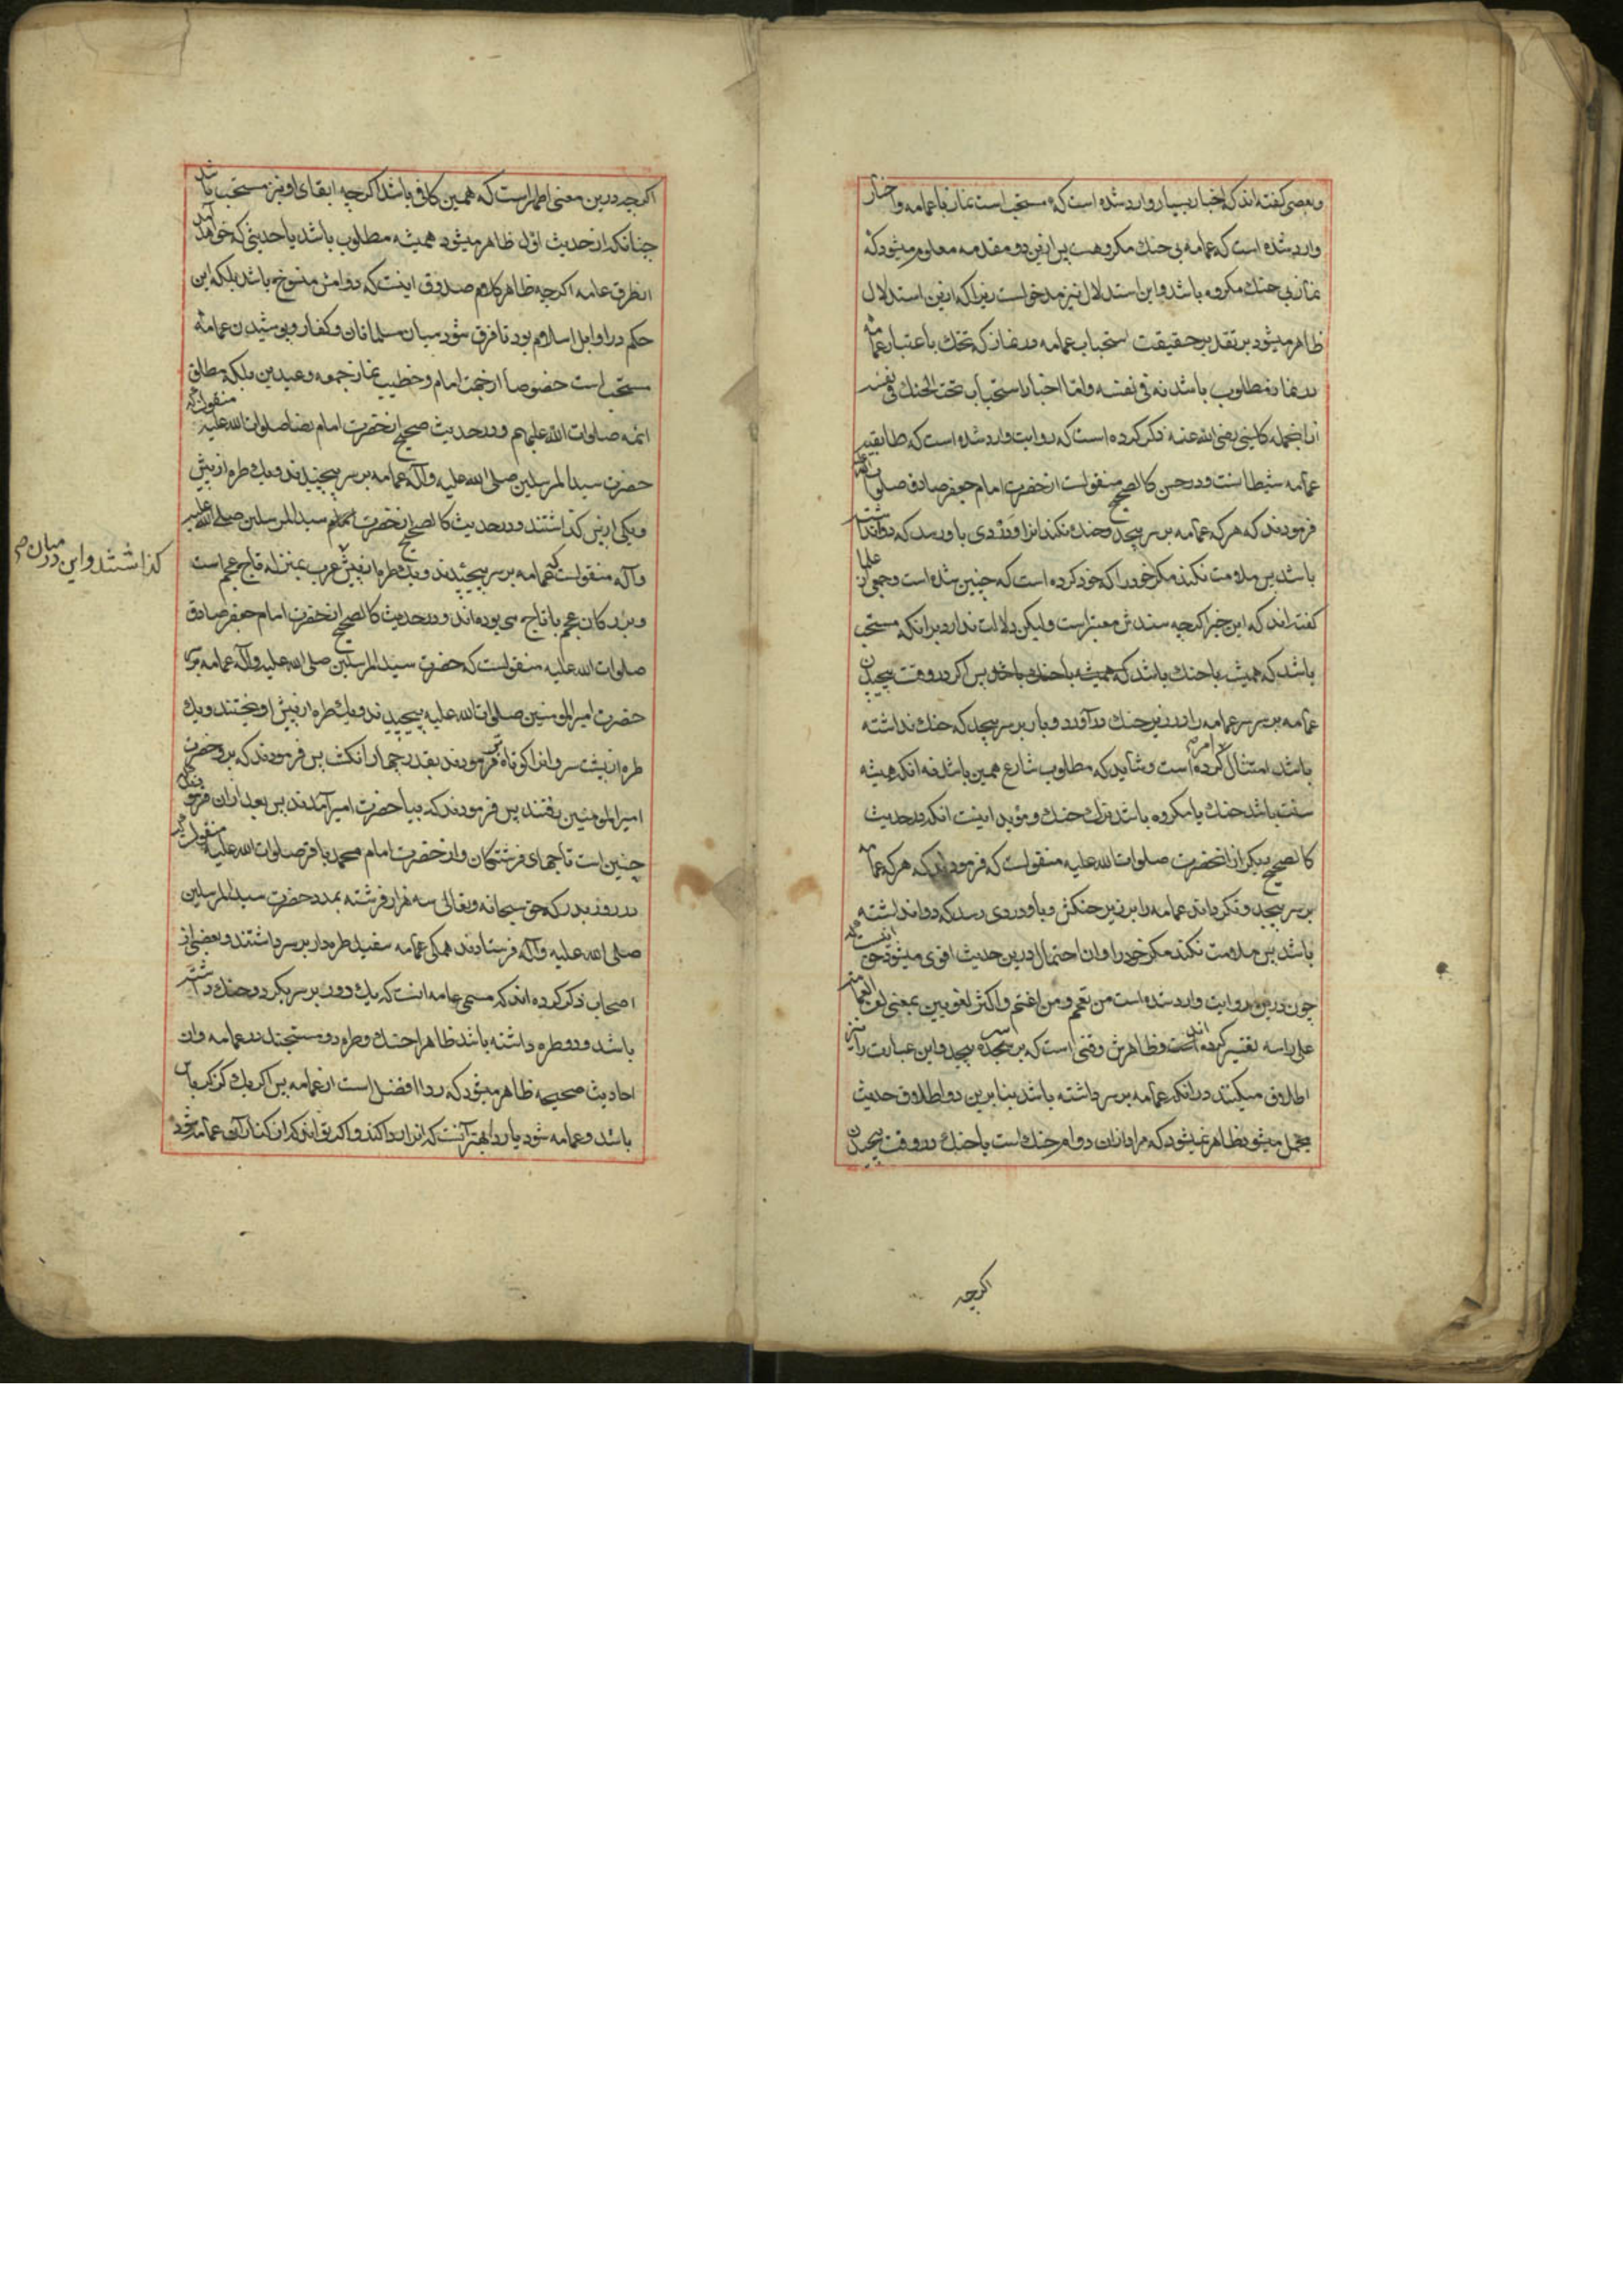 وبعضی کفته اند که اخبار بسیار وارد شده است که مستحب است نماز با عمامه واخبار
وارد شده است که عمامه بی حنک مکروهست پس ازین دو مقدمه معلوم میشود که
نماز بی حنک مکروه باشد واین استدلال نیز مدخولست زیرا که ازین استدلال
ظاهر میشود بر تقدیر حقیقت استحباب عمامه در نماز که تحنک باعتبار عمامه
در نماز مطلوب باشد نه فی نفسه واما اخبار استحباب تحت الحنک فی نفسه
ازانجمله کلینی رضی الله عنه ذکر کرده است که روایت وارد شده است که طابقیه
عمامه شیطانست ودر حسن کالصحیح منقولست ازحضرت امام جعفر صادق صلوات الله علیه
فرمودند که هر که عمامه بر سر پیچد وحنک نکند انرا ودردی باو رسد که دوا نداشته
باشد پس ملامت نکند مکر خود را که خود کرده است که چنین شده است وجمعی از علما
کفته اند که این خبر اکرچه سندش معتبر است ولیکن دلالت ندارد برانکه مستحب
باشد که همیشه باحنک باشد که همیشه باحنک باشد پس اکر در وقت پیچیدن
عمامه بر سر سر عمامه را در زیر حنک درآورد وبار بر سر پیچد که حنک نداشته
باشد امتثال امر کرده است وشاید که مطلوب شارع همین باشد نه انکه همیشه
سنت باشد حنک یا مکروه باشد ترک حنک ومؤید اینست انکه در حدیث
کالصحیح دیکر ازانحضرت صلوات الله علیه منقولست که فرمودند که هر که عمامه
بر سر پیچد ونکرداند عمامه را بر زیر حنکش وباو دردی رسد که دوا نداشته
باشد پس ملامت نکند مکر خود را وان احتمال درین حدیث اقوی میشود
چون درین روایت وارد شده است من تعمم ومن اعتم واکثر لغویین بمعنی لف العمامة
علی راسه تفسیر کرده اند وظاهرش وقتی است که بر سر پیچد واین عبارت را نیز
اطلاق میکنند در انکه عمامه بر سر داشته باشد بنا برین دو اطلاق حدیث
مجمل میشود ظاهر نمیشود که مراد ازان دوام حنک است یا حنک در وقت پیچیدن
اکرچه
اکرچه درین معنی اظهر است که همین کافی باشد اکرچه ابقای او نیز مستحب باشد
چنانکه از حدیث اول ظاهر میشود همیشه مطلوب باشد یا حدیثی که خواهد آمد
از طرق عامه اکرچه ظاهر کلام صدوق اینست که دوامش منسوخ باشد بلکه این
حکم در اوایل اسلام بود تا فرق شود میان مسلمانان وکفار وپوشیدن عمامه
مستحب است خصوصا از جهت امام وخطیب نماز جمعه وعیدین بلکه مطلق
ائمه صلوات الله علیهم ودر حدیث صحیح ازحضرت امام رضا صلوات الله علیه منقولست که
حضرت سید المرسلین صلی الله علیه وآله عمامه بر سر پیچیدند ویک طره از پیش
ویکی از پس کذاشتند ودر حدیث کالصحیح ازحضرت امام سید المرسلین صلی الله علیه
وآله منقولست که عمامه بر سر پیچیدند ویک طره از پیش عرب بمنزله تاج عجم است
کذاشتند واین در میان
وبزرکان عجم با تاج می بوده اند ودر حدیث کالصحیح ازحضرت امام جعفر صادق
صلوات الله علیه منقولست که حضرت سید المرسلین صلی الله علیه وآله عمامه بر سر
حضرت امیر المومنین صلوات الله علیه پیچیدند ویک طره از پیش اویختند ویک
طره از پشت سر وانرا کوتاه تر فرمودند بقدر چهار انکشت پس فرمودند که برو حضرت
امیر المومنین رفتند پس فرمودند که بیا حضرت امیر آمدند پس بعد ازان فرمودند که
چنین است تاجهای فرشتکان وازحضرت امام محمد باقر صلوات الله علیه منقولست که
در روز بدر که حق سبحانه وتعالی سه هزار فرشته بمدد حضرت سید المرسلین
صلی الله علیه وآله فرستادند همکی عمامه سفید طره دار بر سر داشتند وبعضی از
اصحاب ذکر کرده اند که مسمی عمامه انست که یک دور بر سر بکردد وحنک داشته
باشد ودو طره داشته باشد ظاهرا حنک وطره دو مستحبند در عمامه وان
احادیث صحیحه ظاهر میشود که ردا افضل است از عمامه پس اکر یک کرباس
باشد وعمامه شود یا ردا بهتر آنست که انرا ردا کند واکر تواند که از کنار آن عمامه شود